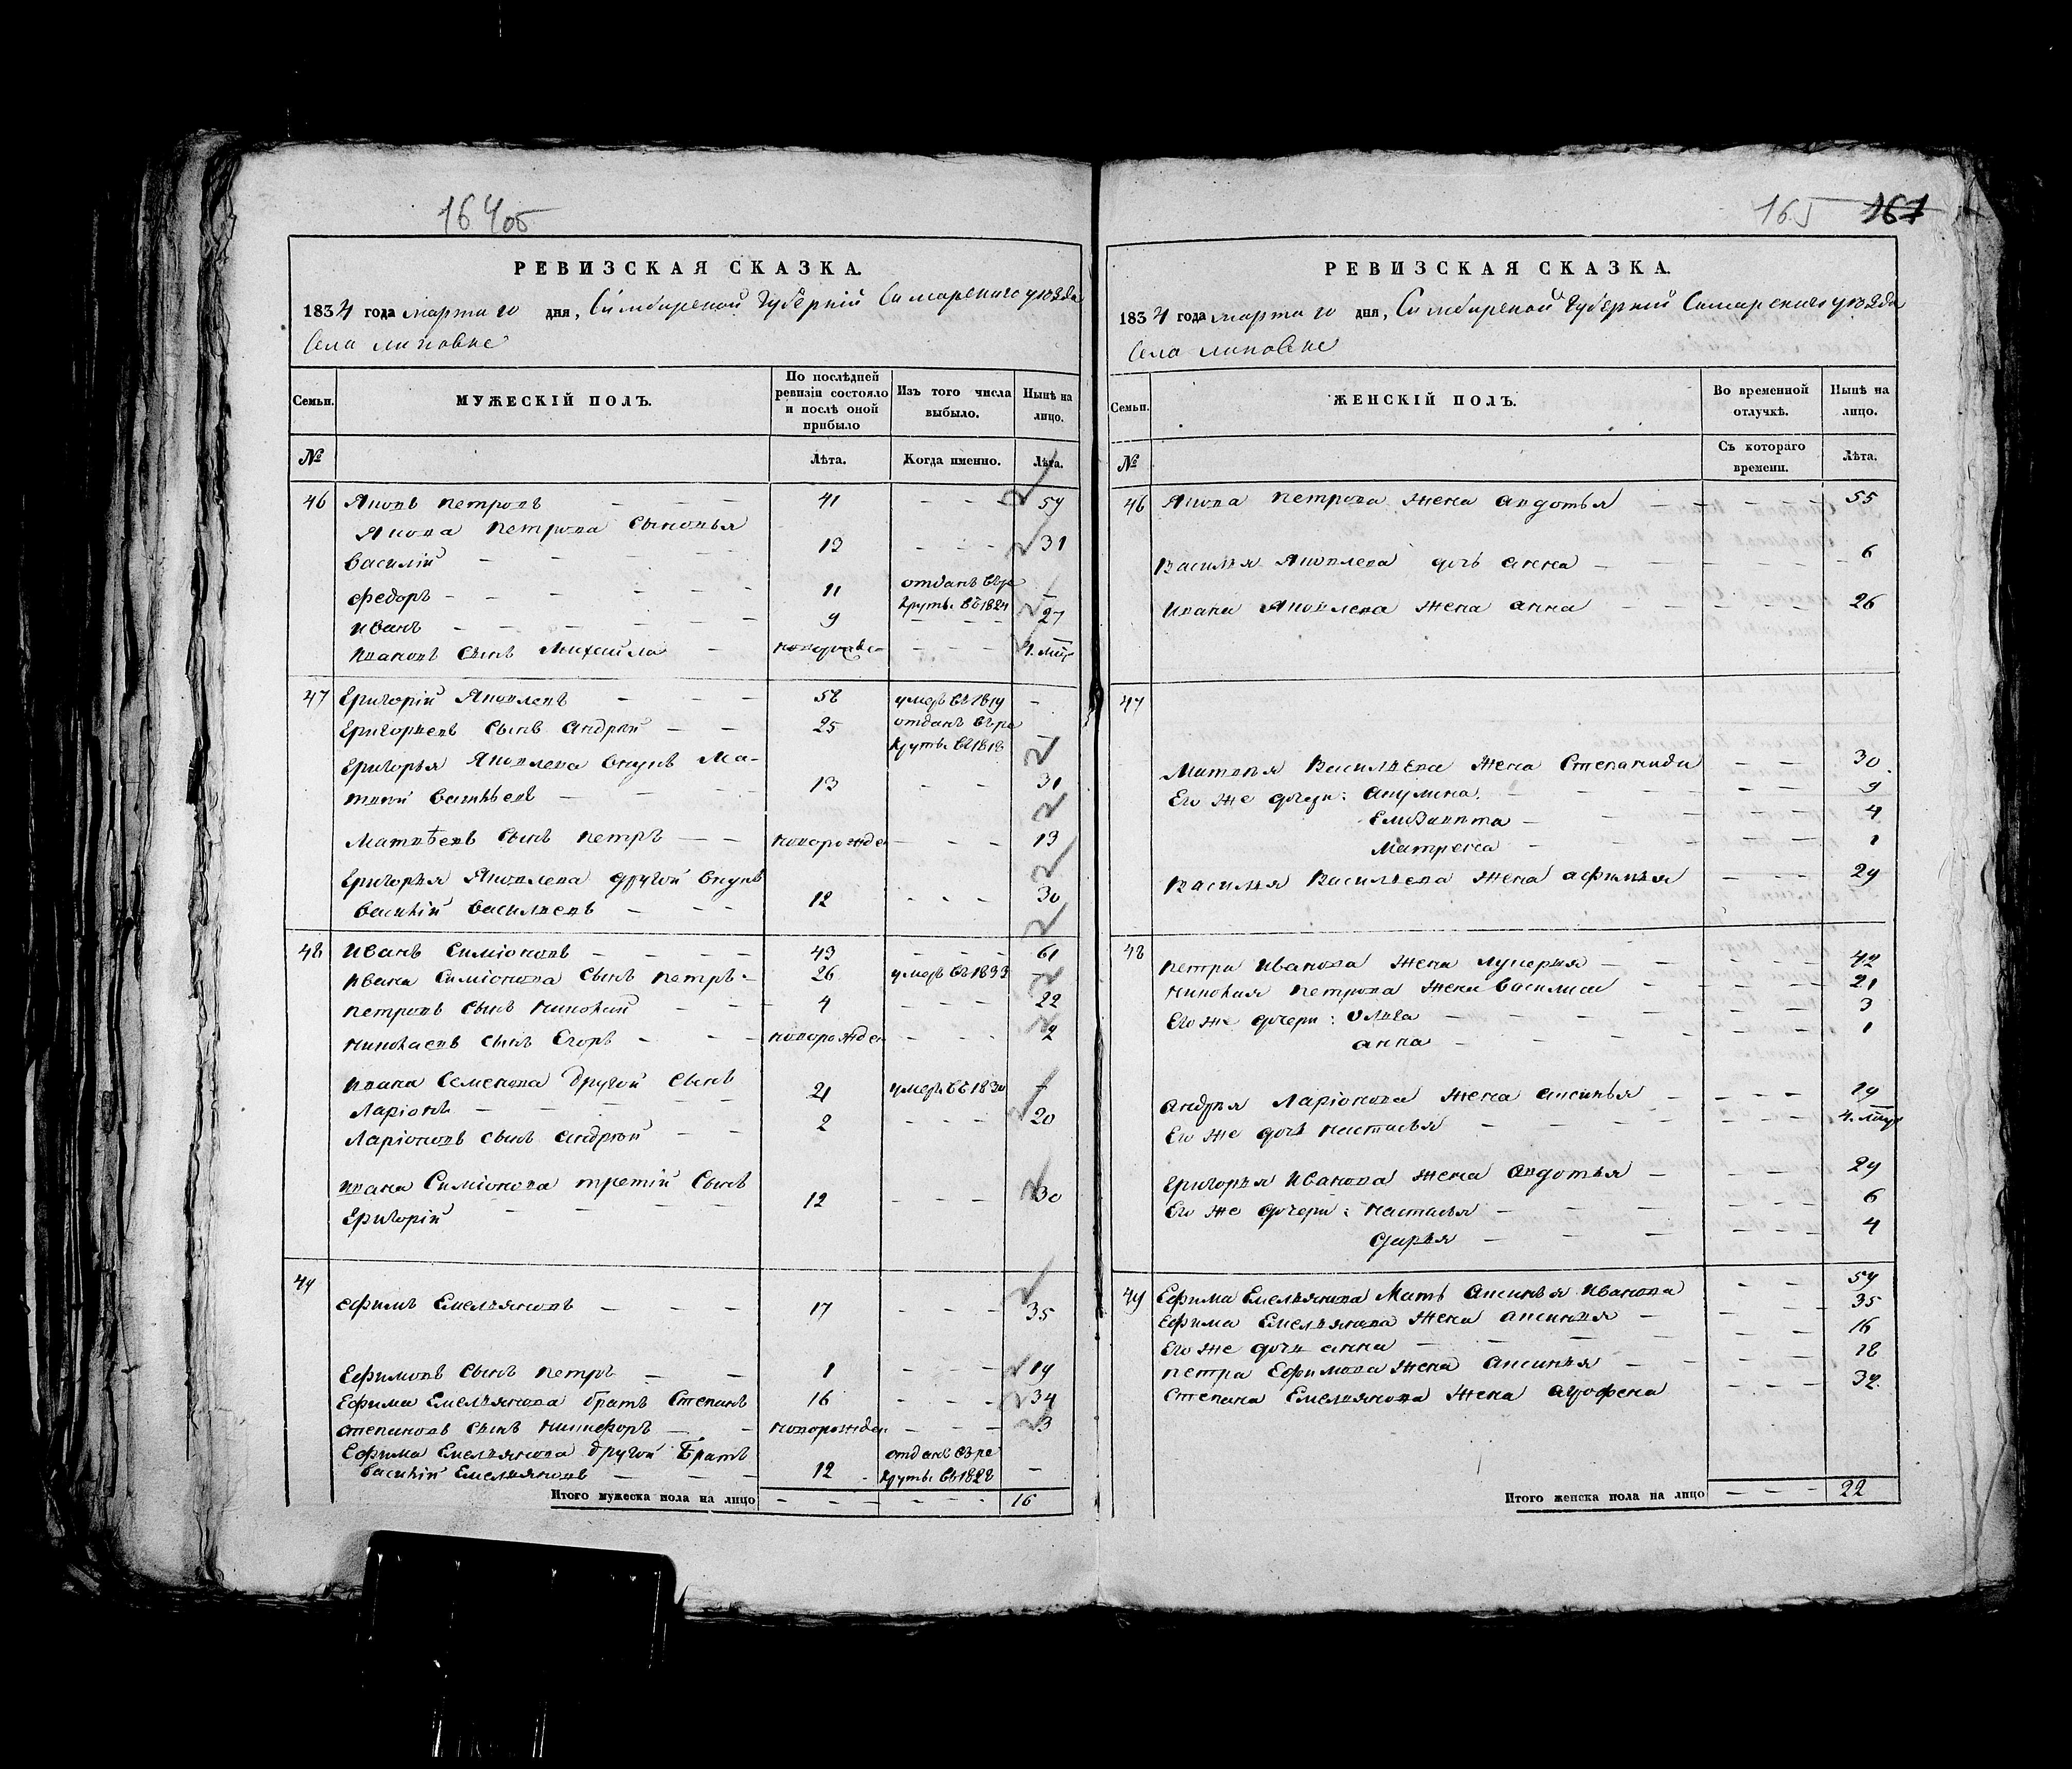 164об
РЕВИЗСКАЯ СКАЗКА.
1834 года марта 10 дня, Симбирской Губерніи Самарского уѣзда
села липовке
Семьи. МУЖЕСКІЙ ПОЛЪ. По послѣдней ревизіи состояло и послѣ оной прибыло Изъ того числа выбыло. Нынѣ на лицо.
№ Лѣта. Когда именно. Лѣта.
46 Яковъ петровъ — — — 41 — — 59
Якова петрова сыновья
василій — — — 13 — — — 31
федоръ — — — 11 отданъ въ ре
круты въ 1824 —
иванъ — — — 9 — — — 27
ивановъ сынъ михаила —
47 Григорій Яковлевъ — — — 58 умеръ въ 1819 —
Григорьевъ сынъ андрей — — 25 отданъ въ ре
круты въ 1818 —
Григорья Яковлева внукъ Ма-
твей васильевъ — — — 13 — — 31
Матвѣевъ сынъ петръ — — новорожде — — — 13
Григорья Яковлева другой внукъ
василій васильевъ — — — 12 — — — 30
48 иванъ симіоновъ — — — — 43 — — — 61
ивана симіонова сынъ петръ — 26 умеръ въ 1833 —
петровъ сынъ николай — — 4 — — — 22
николаевъ сынъ Егоръ — — новорожде — — — 2
ивана семенова другой сынъ
ларіонъ — — — 21 умеръ въ 1830 —
ларіоновъ сынъ андрей — — 2 — — — 20
ивана Симіонова третій сынъ
Григорій — — — 12 — — — 30
49
ефимъ Емельяновъ — — — 17 — — — 35
Ефимовъ сынъ петръ — — 1 — — — 19
Ефима Емельянова братъ Степанъ 16 — — — 34
степановъ сынъ никифоръ — — новорожден — — — 3
Ефима Емельянова другой братъ
василій Емельяновъ — — — 12 отданъ въ ре
круты въ 1828 —
Итого мужеска пола на лицо — — — — — 16
165 167
РЕВИЗСКАЯ СКАЗКА.
1834 года марта 10 дня, Симбирской Губерніи Самарского уѣзда
села липовке
Семьи. ЖЕНСКІЙ ПОЛЪ. Во временной отлучкѣ. Нынѣ на лицо.
№ Съ котораго времени. Лѣта.
46 Якова петрова жена авдотья — — — — 55
василья Яковлева дочь анна — — — — 6
ивана Яковлева жена анна — — — — 26
47
матвея васильева жена степанида — — 30
Его же дочери: акулина — — — 9
Елизавита — — — 4
матрена — — — 1
василья васильева жена афимья — — — 29
48 петра иванова жена лукерья — — — 42
николая петрова жена василиса — — — 21
Его же дочери: олька — — — 3
анна — — — 1
андрея ларіонова жена аксинья — — — 19
Его же дочь настасья — — —
Григорья иванова жена авдотья — — — 29
Его же дочери: настасья — — — 6
дарья — — — 4
49 Ефима Емельянова мать аксинья иванова — — 59
ефима Емельянова жена аксинья — — — 35
Его же дочь анна — — — 16
петра Ефимова жена аксинья — — — 18
степана Емельянова жена агрофена — — — 32
Итого женска пола на лицо — — — 22